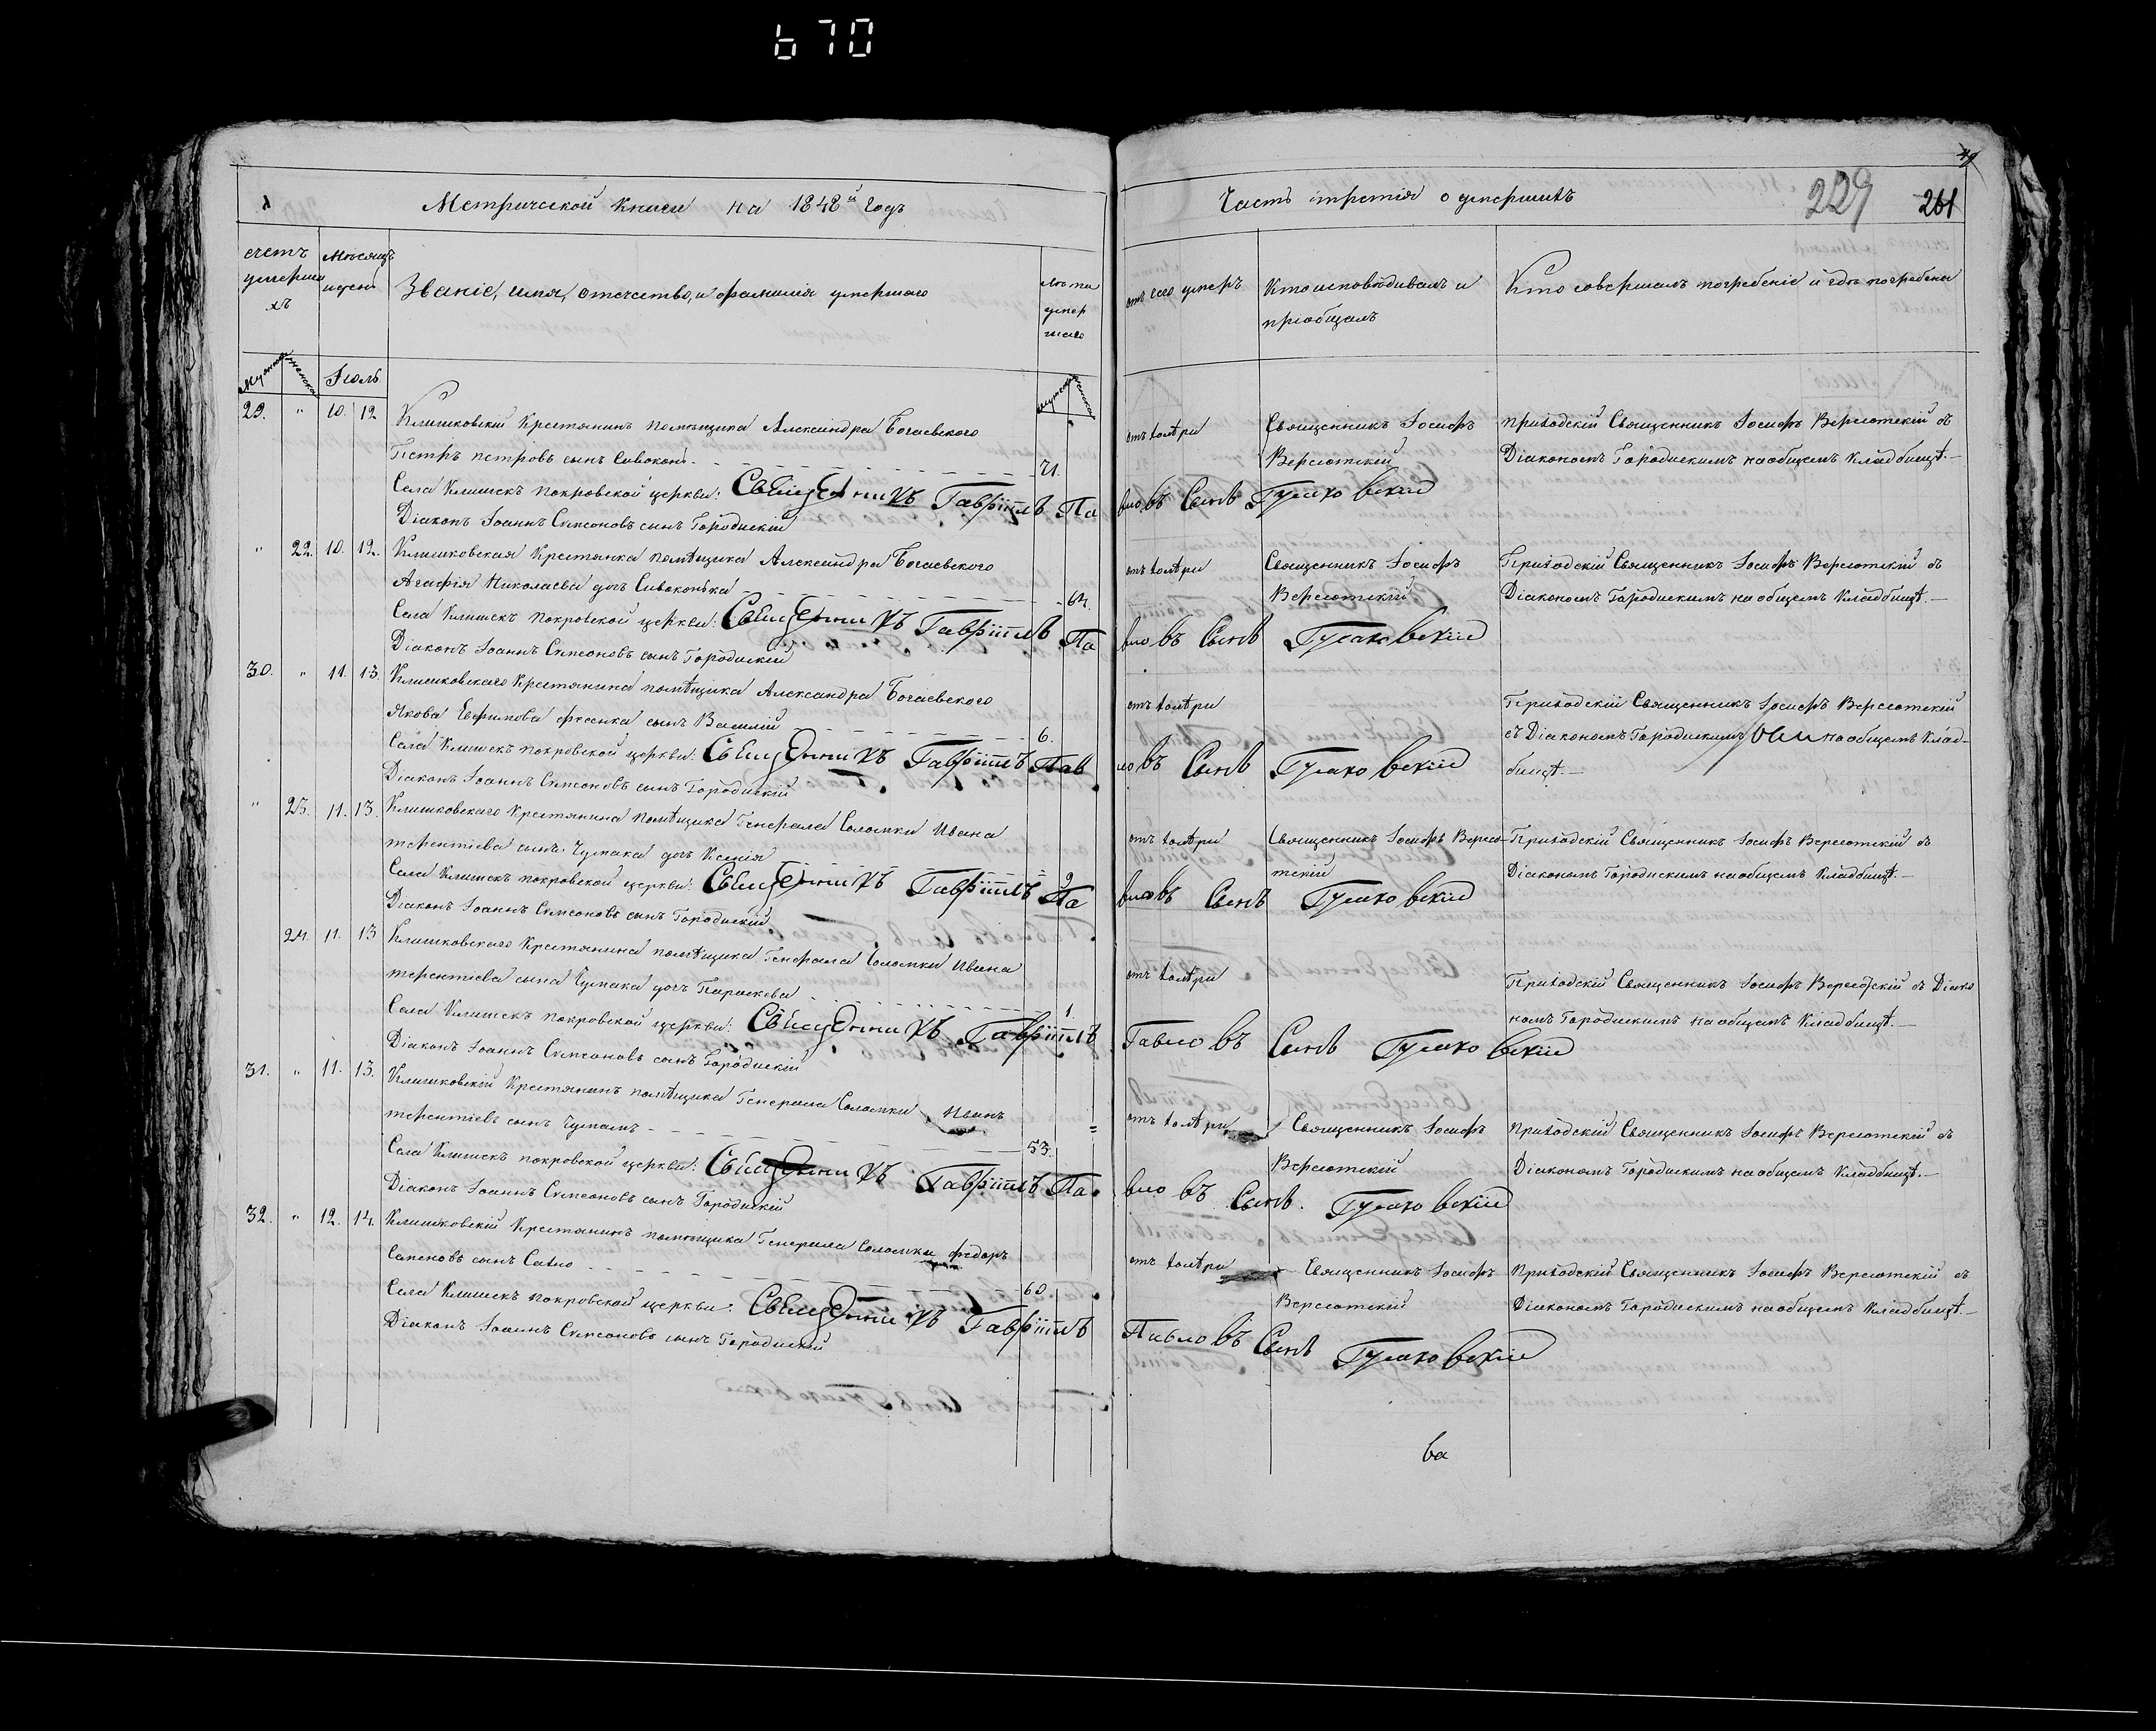 670
Метрической книги на 1848й Годъ
Часть третія о умершихъ
229
261
счетъ умершихъ
Мѣсяцъ и день
Званіе, имя, отечество, и фамилія умершаго
лѣта умершаго
отъ чего умеръ
Кто исповѣдывалъ и пріобщалъ
Кто совершалъ погребеніе и гдѣ погребены
Мужеска
женска
Іюль
мужеска
женска
29. " 10. 12 Клишковскій Крестянинъ помѣщика Александра Богаевского
Петръ петровъ сынъ Сивоконь 71.
отъ холѣри
Священникъ Іосифъ Верготскій
приходскій Священникъ Іосифъ Верготскій съ
Діакономъ Городискимъ на общемъ Кладбищѣ.
Села Клишекъ покровской церкви: Священникъ Гавріилъ Павловъ Сынъ
Діаконъ Іоаннъ Симеоновъ сынъ Городискій
" 22. 10. 12. Клишковская Крестянка помѣщика Александра Богаевского
Агафія Николаева дочъ Сивоконька 64.
отъ холѣри
Священникъ Іосифъ Верготскій
Приходскій Священникъ Іосифъ Верготскій съ
Діакономъ Городискимъ на общемъ Кладбищѣ.
Села Клишекъ покровской церкви: Священникъ Гавріилъ Павловъ Сынъ
Діаконъ Іоаннъ Симеоновъ сынъ Городискій
30. " 11. 13. Клишковскаго Крестянина помѣщика Александра Богаевского
Якова Евфимова сынъ Василій 6.
отъ холѣри
Приходскій Священникъ Іосифъ Верготскій
съ Діакономъ Городискимъ на общемъ Клад-
бищѣ.
Села Клишекъ покровской церкви: Священникъ Гавріилъ Павловъ Сынъ
Діаконъ Іоаннъ Симеоновъ сынъ Городискій
" 23. 11. 13. Клишковскаго Крестянина помѣщика Генерала Соломки Ивана
терентіева сына Чумака дочъ Ксенія 9
отъ холѣри
Священникъ Іосифъ Верготскій
Приходскій Священникъ Іосифъ Верготскій съ
Діакономъ Городискимъ на общемъ Кладбищѣ.
Села Клишекъ покровской церкви: Священникъ Гавріилъ Павловъ Сынъ
Діаконъ Іоаннъ Симеоновъ сынъ Городискій
24. 11. 13 Клишковскаго Крестянина помѣщика Генерала Соломки Ивана
терентіева сына Чумака дочъ Параскева 1.
отъ холѣри
Приходскій Священникъ Іосифъ Верготскій съ Діако
номъ Городискимъ на общемъ Кладбищѣ.
Села Клишекъ покровской церкви: Священникъ Гавріилъ Павловъ Сынъ
Діаконъ Іоаннъ Симеоновъ сынъ Городискій
31. " 11. 13. Клишковскій Крестянинъ помѣщика Генерала Соломки Иванъ
терентіевъ сынъ Чумакъ 53.
отъ холѣри
Священникъ Іосифъ Верготскій
приходскій Священникъ Іосифъ Верготскій съ
Діакономъ Городискимъ на общемъ Кладбищѣ.
Села Клишекъ покровской церкви: Священникъ Гавріилъ Павловъ Сынъ
Діаконъ Іоаннъ Симеоновъ сынъ Городискій
32. " 12. 14. Клишковскій Крестянинъ помѣщика Генерала Соломки Федоръ
сынъ 60.
отъ холѣри
Священникъ Іосифъ Верготскій
приходскій Священникъ Іосифъ Верготскій съ
Діакономъ Городискимъ на общемъ Кладбищѣ.
Села Клишекъ покровской церкви: Священникъ Гавріилъ Павловъ Сынъ
Діаконъ Іоаннъ Симеоновъ сынъ Городискій
ва